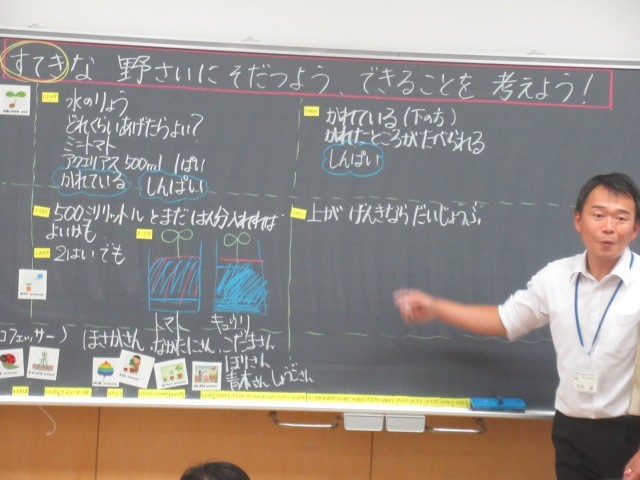 すてきな 野さいにそだつよう、できることを 考えよう!
水のりょう
どれくらいあげたらよい?
ミニトマト
アクエリアス500ml 1ぱい
かれている しんぱい
500ミリリットルとまだはん分入れれば
よいかも
2はいでも
トマト キュウリ
かれている(下の方)
かれたところがたべられる
しんぱい
上が げんきなら だいじょうぶ
フェッサー) ほさかさん、なかたにさん、こだまさん
ほりさん
青木さん